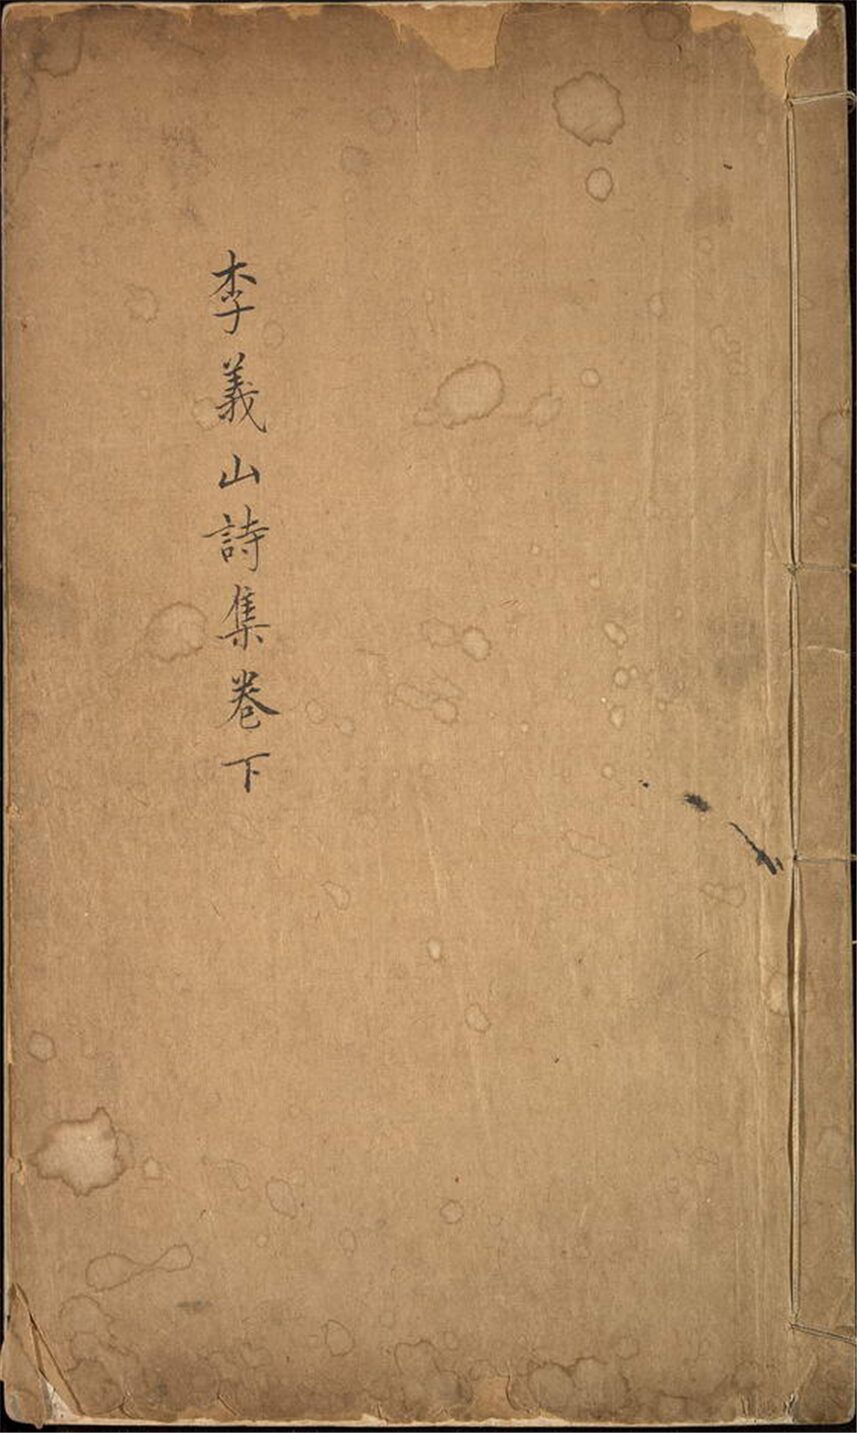 李義山詩集卷下